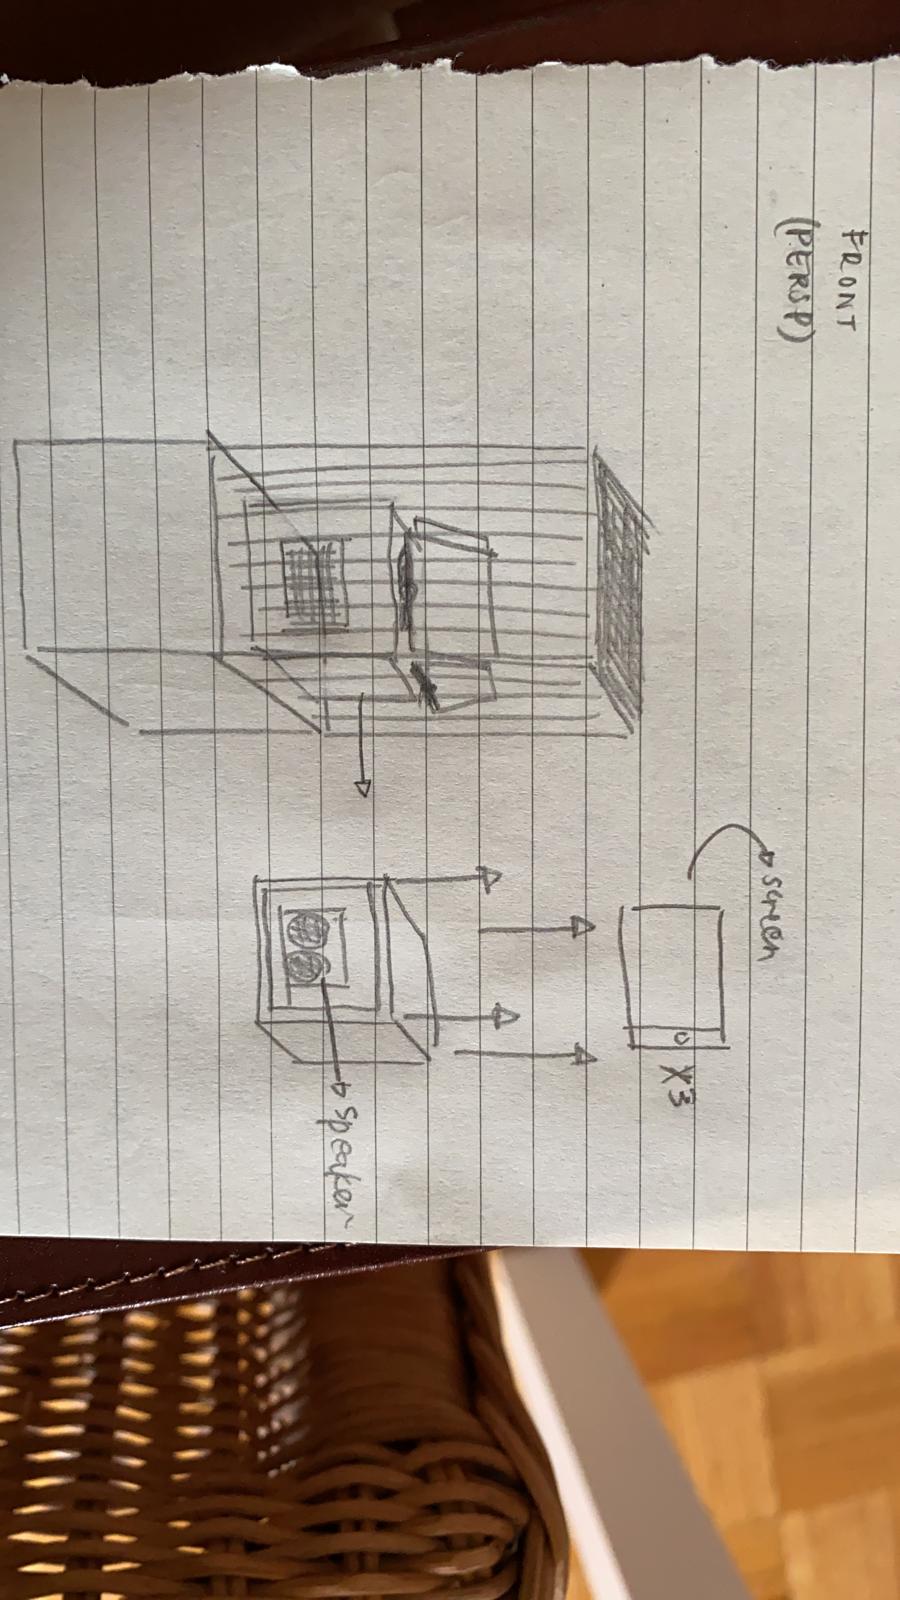 FRONT
(PERSP)
screen
X3
speaker